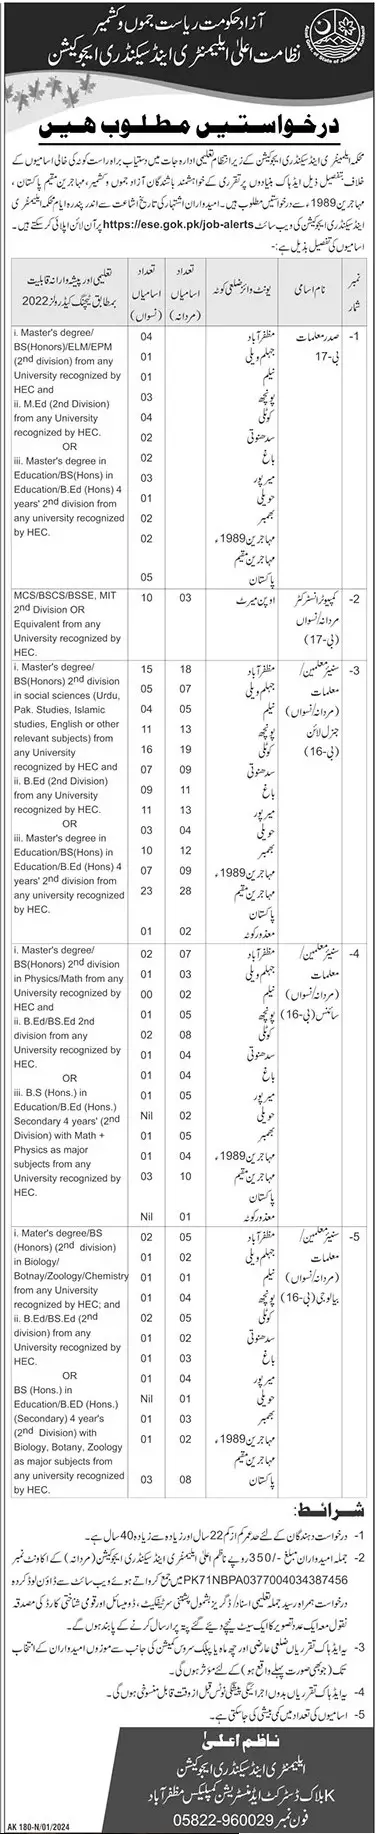 آزاد حکومت ریاست جموں و کشمیر
نظامت اعلیٰ ایلیمنٹری اینڈ سیکنڈری ایجوکیشن
درخواستیں مطلوب ہیں
محکمہ ایلیمنٹری اینڈ سیکنڈری ایجوکیشن کے زیر انتظام تعلیمی ادارہ جات میں دستیاب براہ راست کوٹہ کی خالی اسامیوں کے
خلاف بتفصیل ذیل ایڈہاک بنیادوں پر تقرری کے خواہشمند باشندگان آزاد جموں و کشمیر، مہاجرین مقیم پاکستان،
مہاجرین 1989ء سے درخواستیں مطلوب ہیں۔ امیدواران اشتہار کی تاریخ اشاعت سے اندر پندرہ ایام محکمہ ایلیمنٹری
اینڈ سیکنڈری ایجوکیشن کی ویب سائٹ https://ese.gok.pk/job-alerts پر آن لائن اپلائی کر سکتے ہیں۔
اسامیوں کی تفصیل بذیل ہے:۔
نمبر شمار
نام اسامی
یونٹ وائز ضلعی کوٹہ
تعداد اسامیاں (مردانہ)
تعداد اسامیاں (نسواں)
تعلیمی اور پیشہ وارانہ قابلیت بمطابق ٹیچنگ کیڈر رولز 2022
1-
صدر معلمات
بی-17
مظفر آباد 04
جہلم ویلی 01
نیلم 01
پونچھ 03
کوٹلی 04
سدھنوتی 02
باغ 02
میر پور 03
حویلی 01
بھمبر 02
مہاجرین 1989ء 02
مہاجرین مقیم
پاکستان 05
i. Master's degree/
BS(Honors)/ELM/EPM
(2nd division) from any
University recognized by
HEC and
ii. M.Ed (2nd Division)
from any University
recognized by HEC.
OR
iii. Master's degree in
Education/BS(Hons) in
Education/B.Ed (Hons) 4
years' 2nd division from
any university recognized
by HEC.
2-
کمپیوٹر انسٹرکٹر
مردانہ/نسواں
(بی-17)
اوپن میرٹ 03 10
MCS/BSCS/BSSE, MIT
2nd Division OR
Equivalent from any
University recognized by
HEC.
3-
سینئر معلمین/
معلمات
(مردانہ/نسواں)
جنرل لائن
(بی-16)
مظفر آباد 18 15
جہلم ویلی 07 05
نیلم 05 04
پونچھ 13 11
کوٹلی 19 16
سدھنوتی 09 07
باغ 11 09
میر پور 13 11
حویلی 04 03
بھمبر 12 10
مہاجرین 1989ء 09 07
مہاجرین مقیم 28 23
پاکستان
معذور کوٹہ 02 01
i. Master's degree/
BS(Honors) 2nd division
in social sciences (Urdu,
Pak. Studies, Islamic
studies, English or other
relevant subjects) from
any University
recognized by HEC and
ii. B.Ed (2nd Division)
from any University
recognized by HEC.
OR
iii. Master's degree in
Education/BS(Hons) in
Education/B.Ed (Hons) 4
years' 2nd division from
any university recognized
by HEC.
4-
سینئر معلمین/
معلمات
(مردانہ/نسواں)
سائنس (بی-16)
مظفر آباد 07 02
جہلم ویلی 03 01
نیلم 02 00
پونچھ 05 01
کوٹلی 08 02
سدھنوتی 04 01
باغ 04 01
میر پور 05 01
حویلی 02 Nil
بھمبر 05 01
مہاجرین 1989ء 04 01
مہاجرین مقیم 10 03
پاکستان
معذور کوٹہ 01 Nil
i. Master's degree/
BS(Honors) 2nd division
in Physics/Math from any
University recognized by
HEC and
ii. B.Ed/BS.Ed 2nd
division from any
University recognized by
HEC.
OR
iii. B.S (Hons.) in
Education/B.Ed (Hons.)
Secondary 4 years' (2nd
Division) with Math +
Physics as major
subjects from any
University recognized by
HEC.
5-
سینئر معلمین/
معلمات
(مردانہ/نسواں)
بیالوجی (بی-16)
مظفر آباد 05 02
جہلم ویلی 02 01
نیلم 01 01
پونچھ 04 01
کوٹلی 05 02
سدھنوتی 02 01
باغ 03 01
میر پور 04 01
حویلی 01 Nil
بھمبر 03 01
مہاجرین 1989ء 02 01
مہاجرین مقیم
پاکستان 08 03
i. Mater's degree/BS
(Honors) (2nd division)
in Biology/
Botnay/Zoology/Chemistry
from any University
recognized by HEC; and
ii. B.Ed/BS.Ed (2nd
division) from any
University recognized by
HEC.
OR
BS (Hons.) in
Education/B.ED (Hons.)
(Secondary) 4 year's
(2nd Division) with
Biology, Botany, Zoology
as major subjects from
any university recognized
by HEC.
شرائط:
1- درخواست دہندگان کے لئے حد عمر کم از کم 22 سال اور زیادہ سے زیادہ 40 سال ہے۔
2- جملہ امیدواران مبلغ -/350 روپے ناظم اعلیٰ ایلیمنٹری اینڈ سیکنڈری ایجوکیشن (مردانہ) کے اکاونٹ نمبر
PK71NBPA0377004034387456 میں جمع کرواتے ہوئے ویب سائٹ سے ڈاؤن لوڈ کردہ
درخواست ہمراہ رسید جملہ تعلیمی اسناد/ڈگریز بشمول پشتنی سرٹیفکیٹ، ڈومیسائل اور قومی شناختی کارڈ کی مصدقہ
نقول معہ ایک عدد تصویر کا ایک سیٹ نیچے دیئے گئے پتہ پر ارسال کرنے کے پابند ہوں گے۔
3- یہ ایڈہاک تقرریاں ضلعی عارضی اور چھ ماہ یا پبلک سروس کمیشن کی جانب سے موزوں امیدواران کے انتخاب
تک (جو بھی صورت پہلے واقع ہو) کے لئے موثر ہوں گی۔
4- یہ ایڈہاک تقرریاں بدوں اجرائیگی پیشگی نوٹس قبل از وقت قابل منسوخی ہوں گی۔
5- اسامیوں کی تعداد میں کمی بیشی کی جا سکتی ہے۔
ناظم اعلیٰ
ایلیمنٹری اینڈ سیکنڈری ایجوکیشن
K بلاک ڈسٹرکٹ ایڈمنسٹریشن کمپلیکس مظفر آباد
فون نمبر 05822-960029
AK 180-N/01/2024